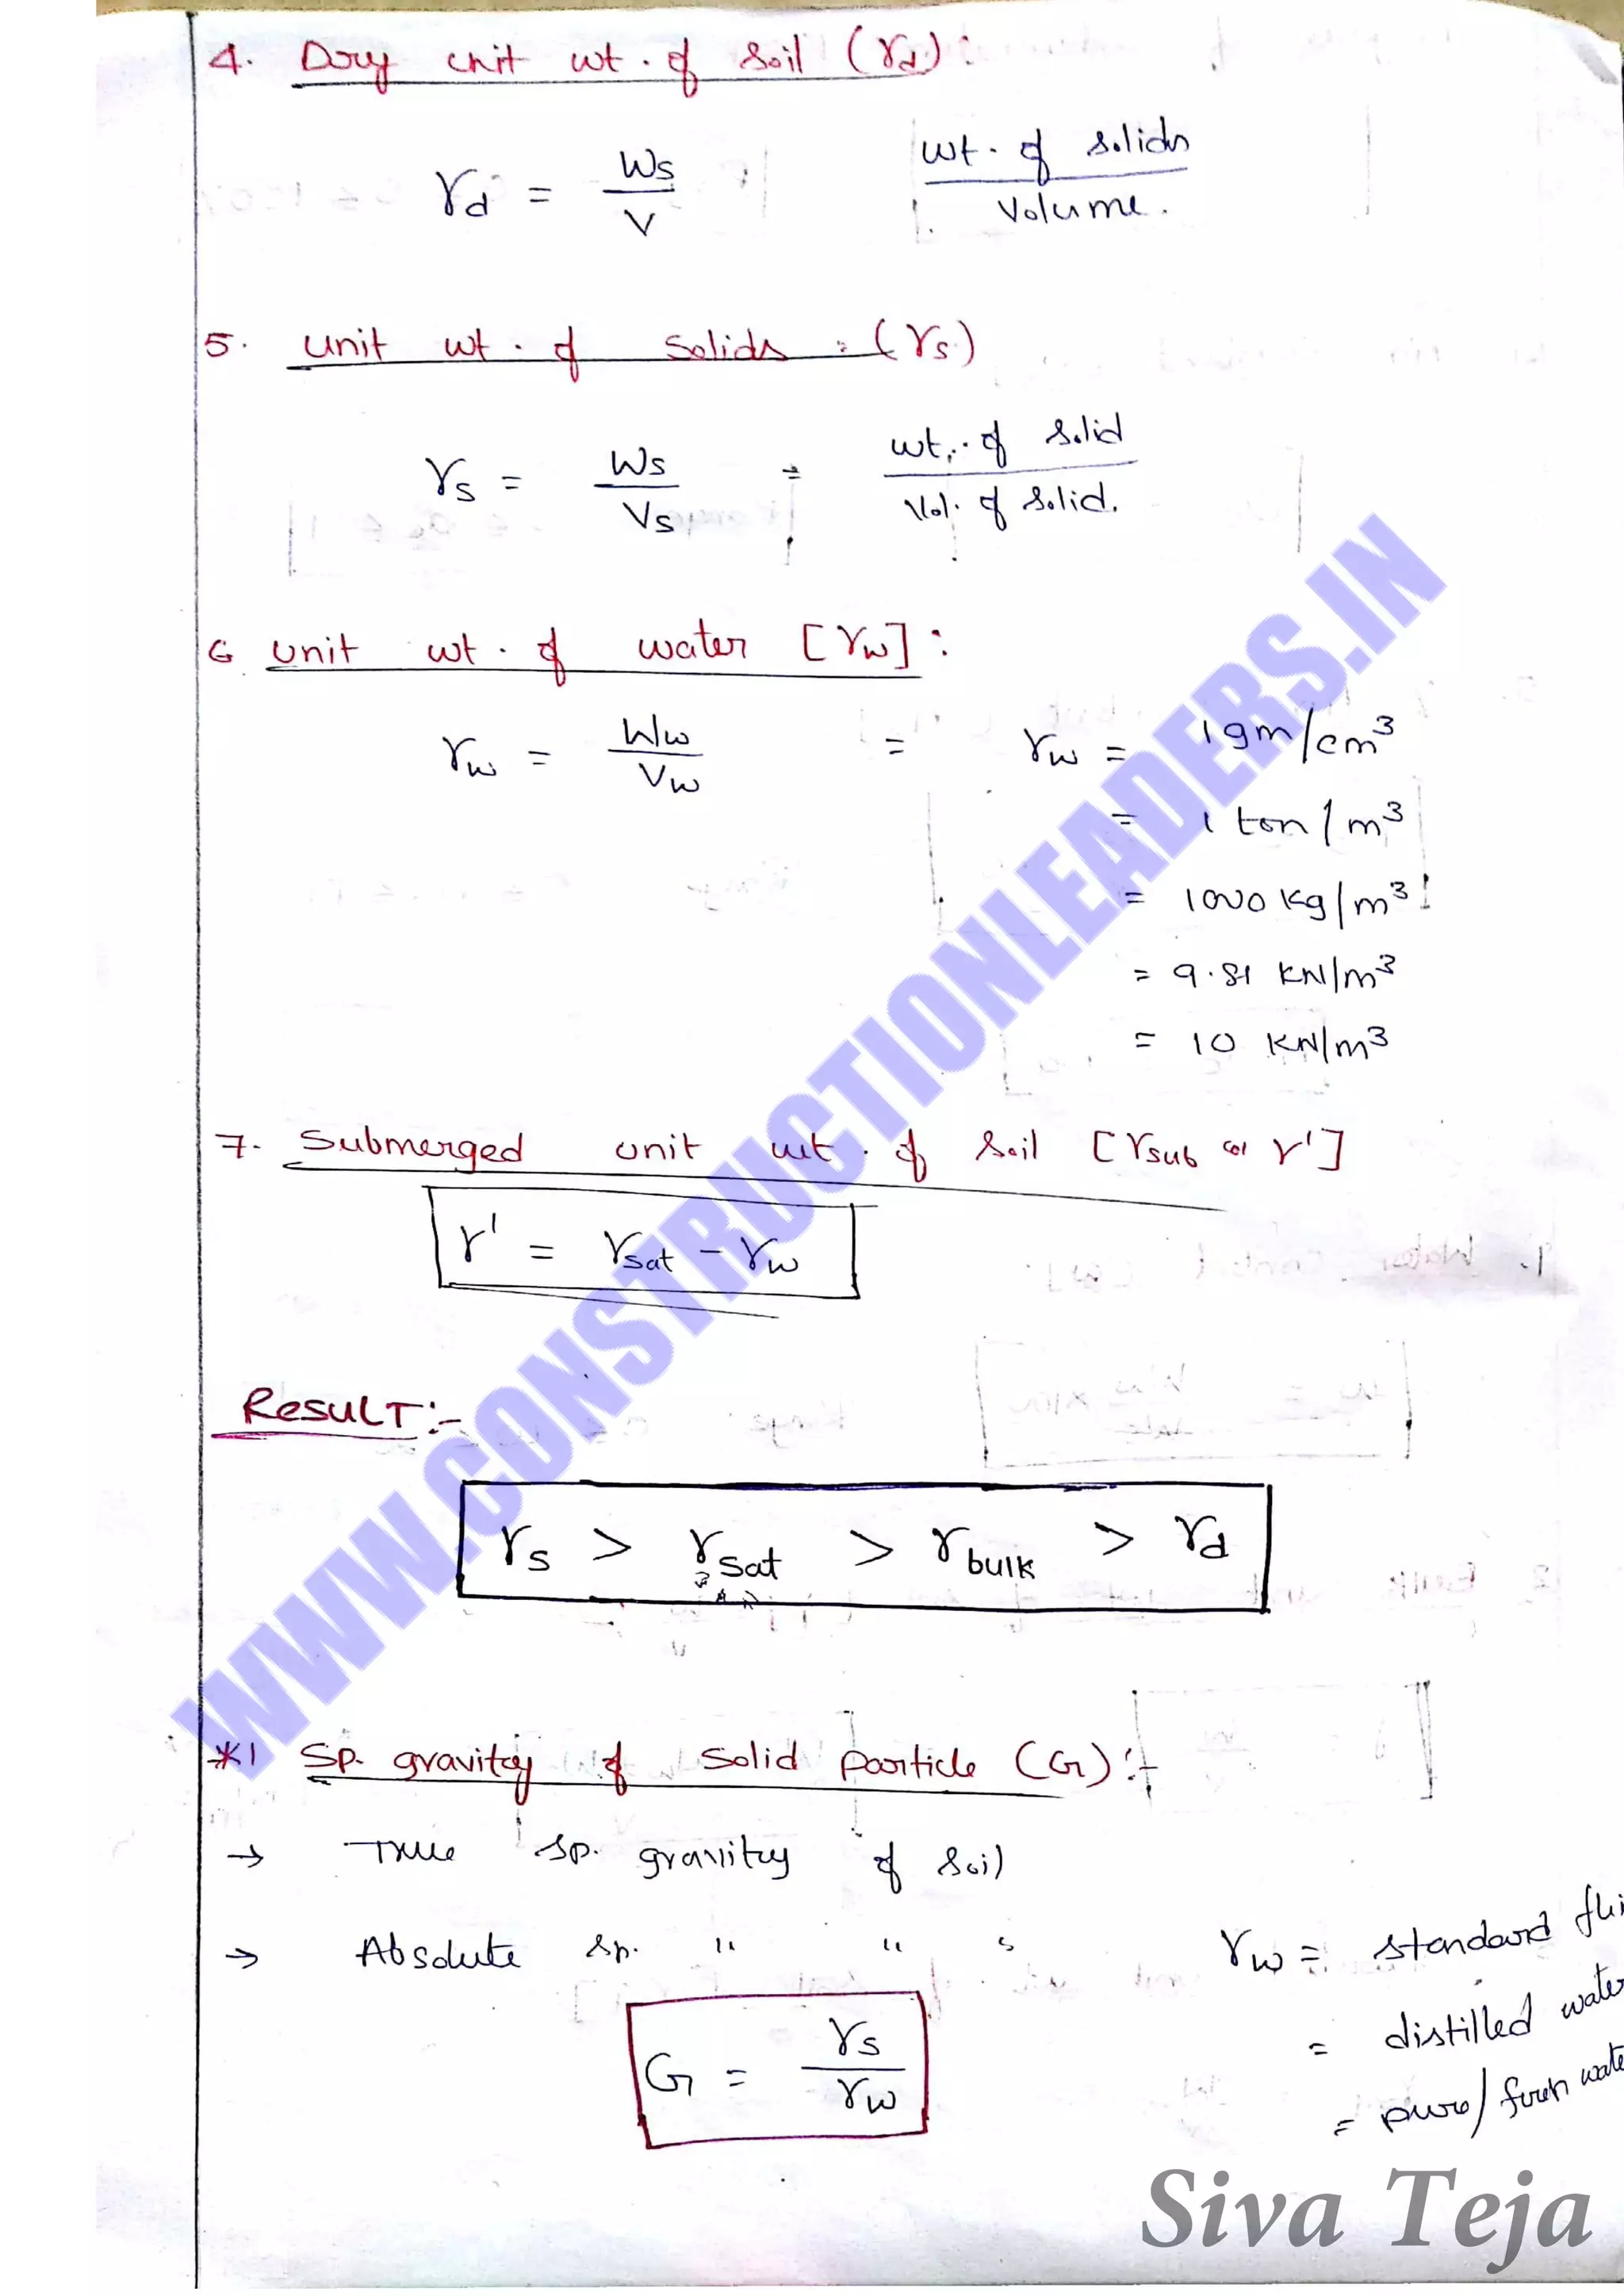 4. Dry unit wt. of soil (γd):
γd = Ws / V    wt. of solids / Volume.
5. unit wt. of solids : (γs)
γs = Ws / Vs = wt. of solid / Vol. of solid.
6. unit wt. of water [γw] :
γw = Ww / Vw = γw = 1 gm/cm³
= 1 ton/m³
= 1000 kg/m³
= 9.81 KN/m³
= 10 KN/m³
7. Submerged unit wt. of soil [γsub or γ']
γ' = γsat - γw
RESULT:-
γs > γsat > γbulk > γd
*1 Sp. gravity of solid particle (G):-
→ True sp. gravity of soil
→ Absolute sp. " " "
γw = standard
= distilled water
= pure/
G = γs / γw
WWW.CONSTRUCTIONLEADERS.IN
Siva Teja